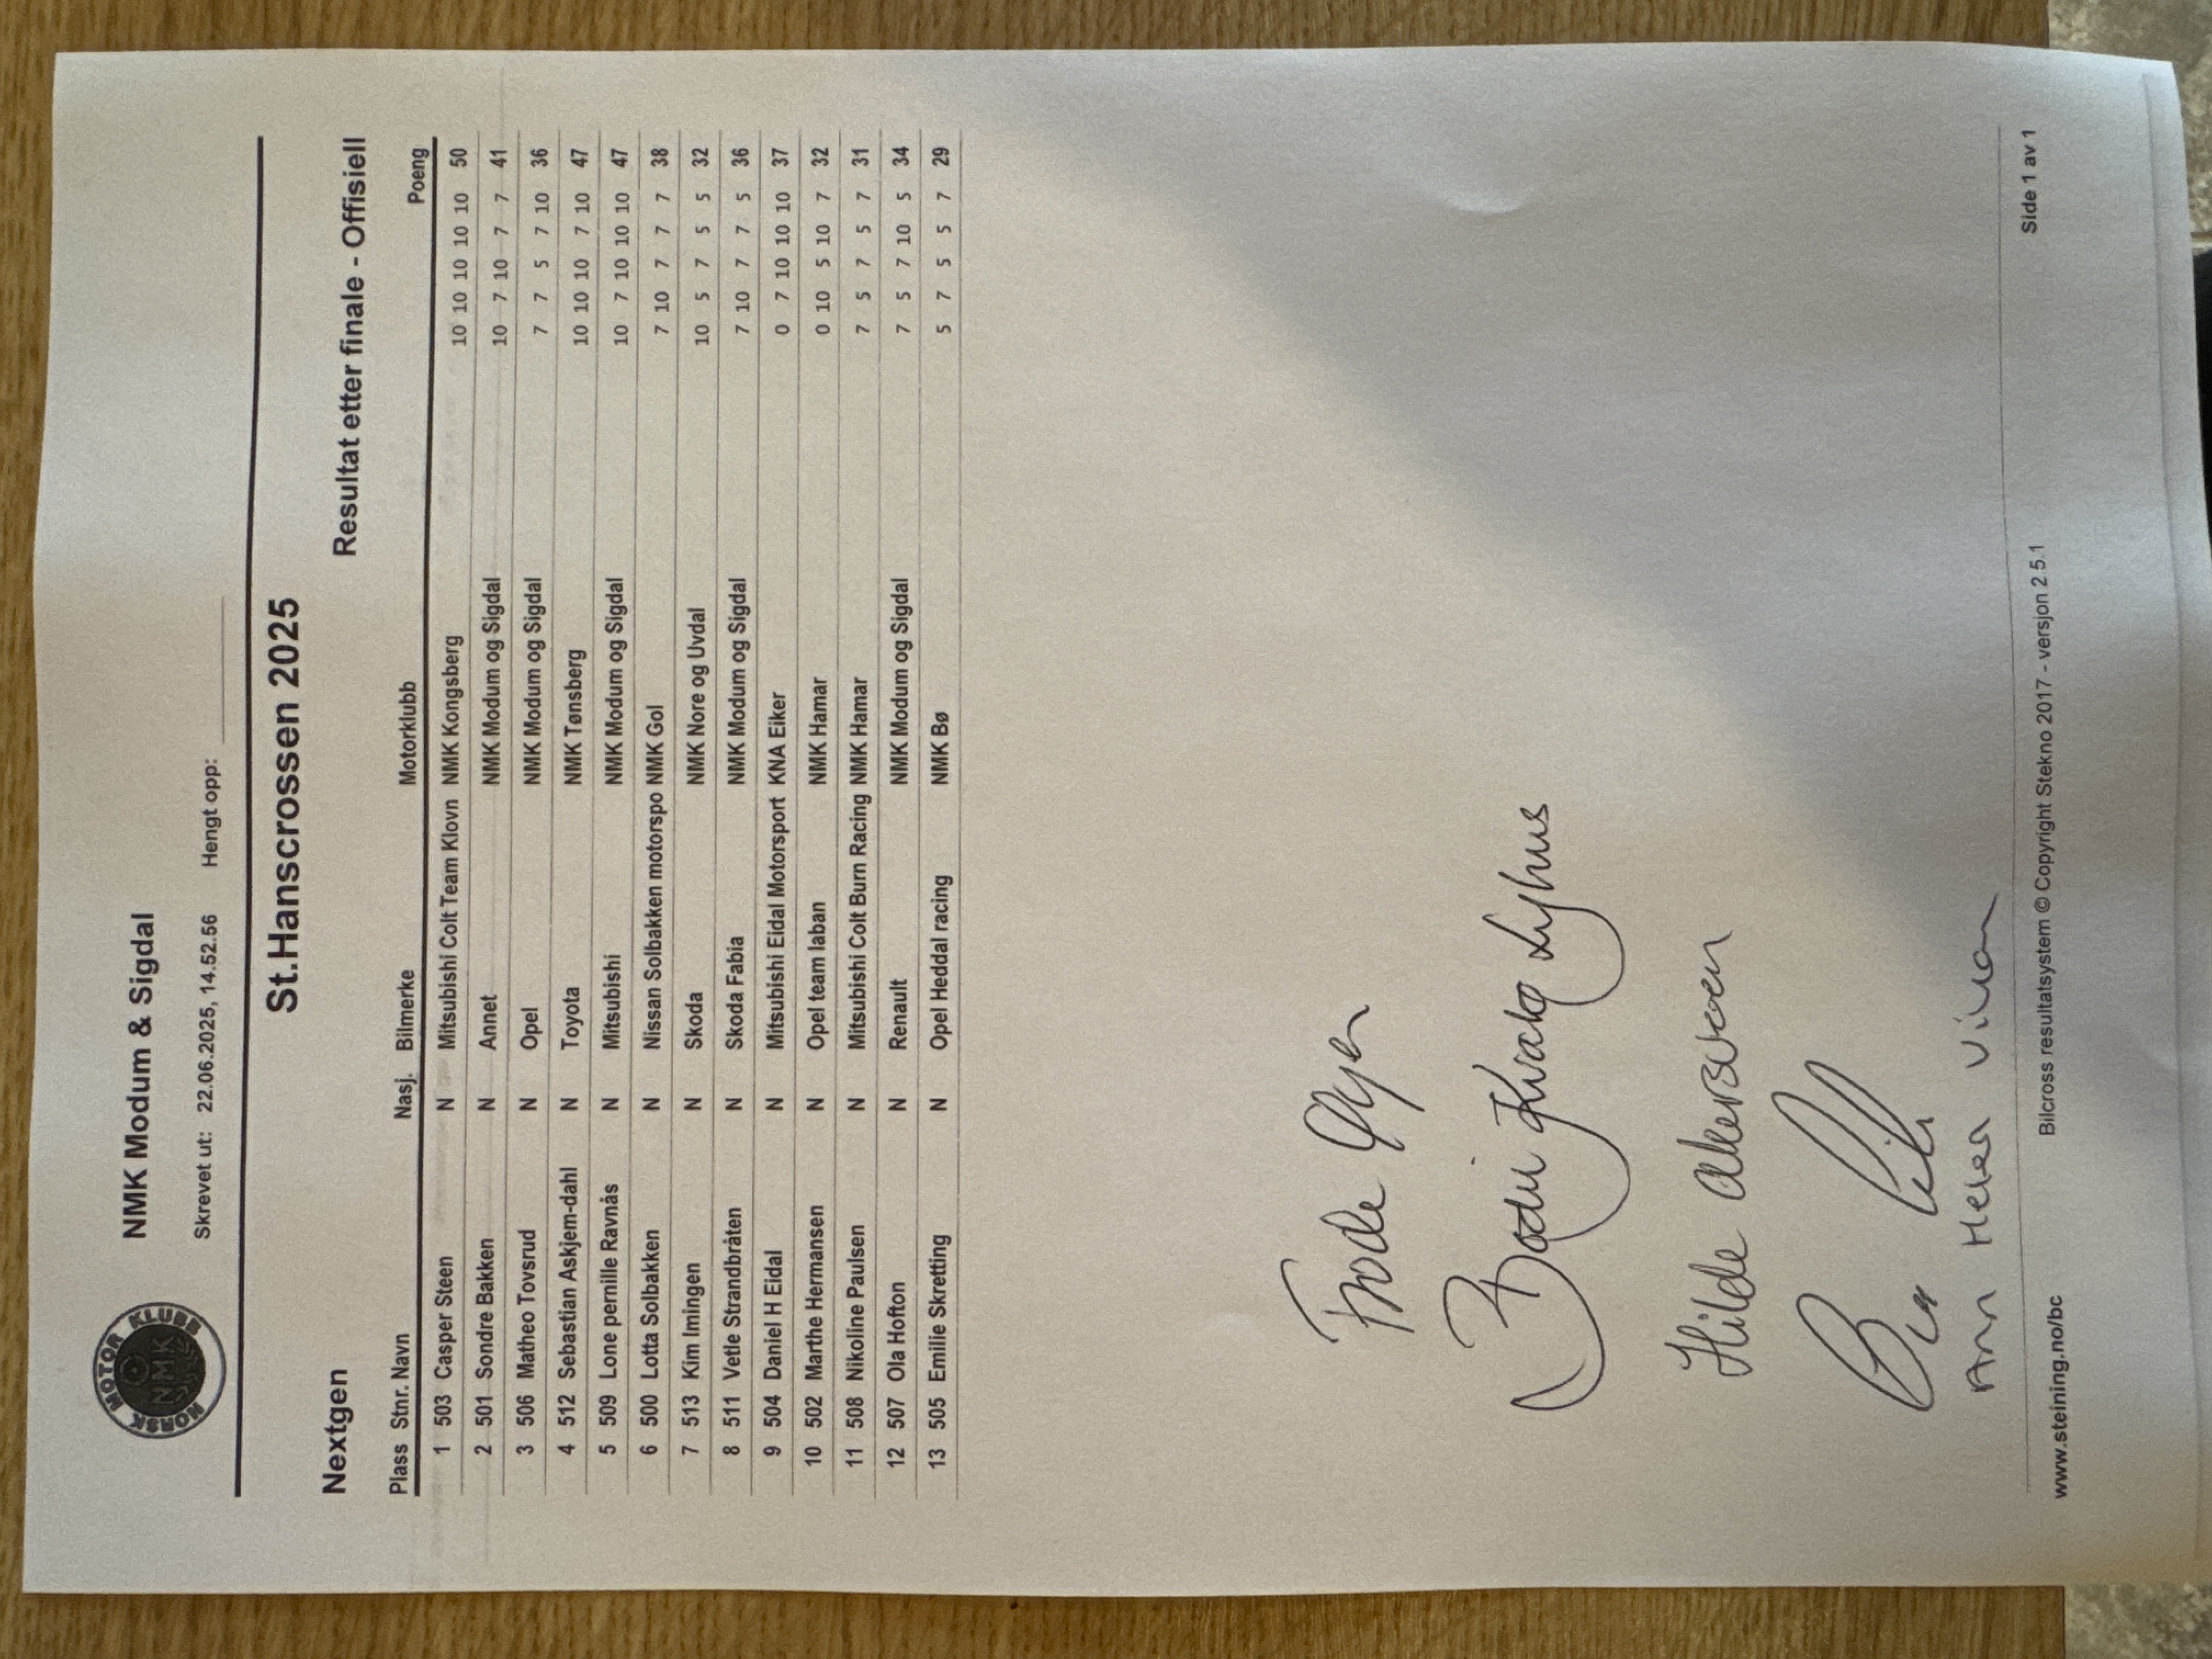 NORSK MOTOR KLUBB
NMK
NMK Modum & Sigdal
Skrevet ut: 22.06.2025, 14.52.56 Hengt opp:
St.Hanscrossen 2025
Nextgen Resultat etter finale - Offisiell
Plass Stnr. Navn Nasj. Bilmerke Motorklubb Poeng
1 503 Casper Steen N Mitsubishi Colt Team Klovn NMK Kongsberg 10 10 10 10 10 50
2 501 Sondre Bakken N Annet NMK Modum og Sigdal 10 7 10 7 7 41
3 506 Matheo Tovsrud N Opel NMK Modum og Sigdal 7 7 5 7 10 36
4 512 Sebastian Askjem-dahl N Toyota NMK Tønsberg 10 10 10 7 10 47
5 509 Lone pernille Ravnås N Mitsubishi NMK Modum og Sigdal 10 7 10 10 10 47
6 500 Lotta Solbakken N Nissan Solbakken motorspo NMK Gol 7 10 7 7 7 38
7 513 Kim Imingen N Skoda NMK Nore og Uvdal 10 5 7 5 5 32
8 511 Vetle Strandbråten N Skoda Fabia NMK Modum og Sigdal 7 10 7 7 5 36
9 504 Daniel H Eidal N Mitsubishi Eidal Motorsport KNA Eiker 0 7 10 10 10 37
10 502 Marthe Hermansen N Opel team laban NMK Hamar 0 10 5 10 7 32
11 508 Nikoline Paulsen N Mitsubishi Colt Burn Racing NMK Hamar 7 5 7 5 7 31
12 507 Ola Hofton N Renault NMK Modum og Sigdal 7 5 7 10 5 34
13 505 Emilie Skretting N Opel Heddal racing NMK Bø 5 7 5 5 7 29
Frode
Hilde
Ann Helen
www.steining.no/bc Bilcross resultatsystem © Copyright Stekno 2017 - versjon 2.5.1 Side 1 av 1